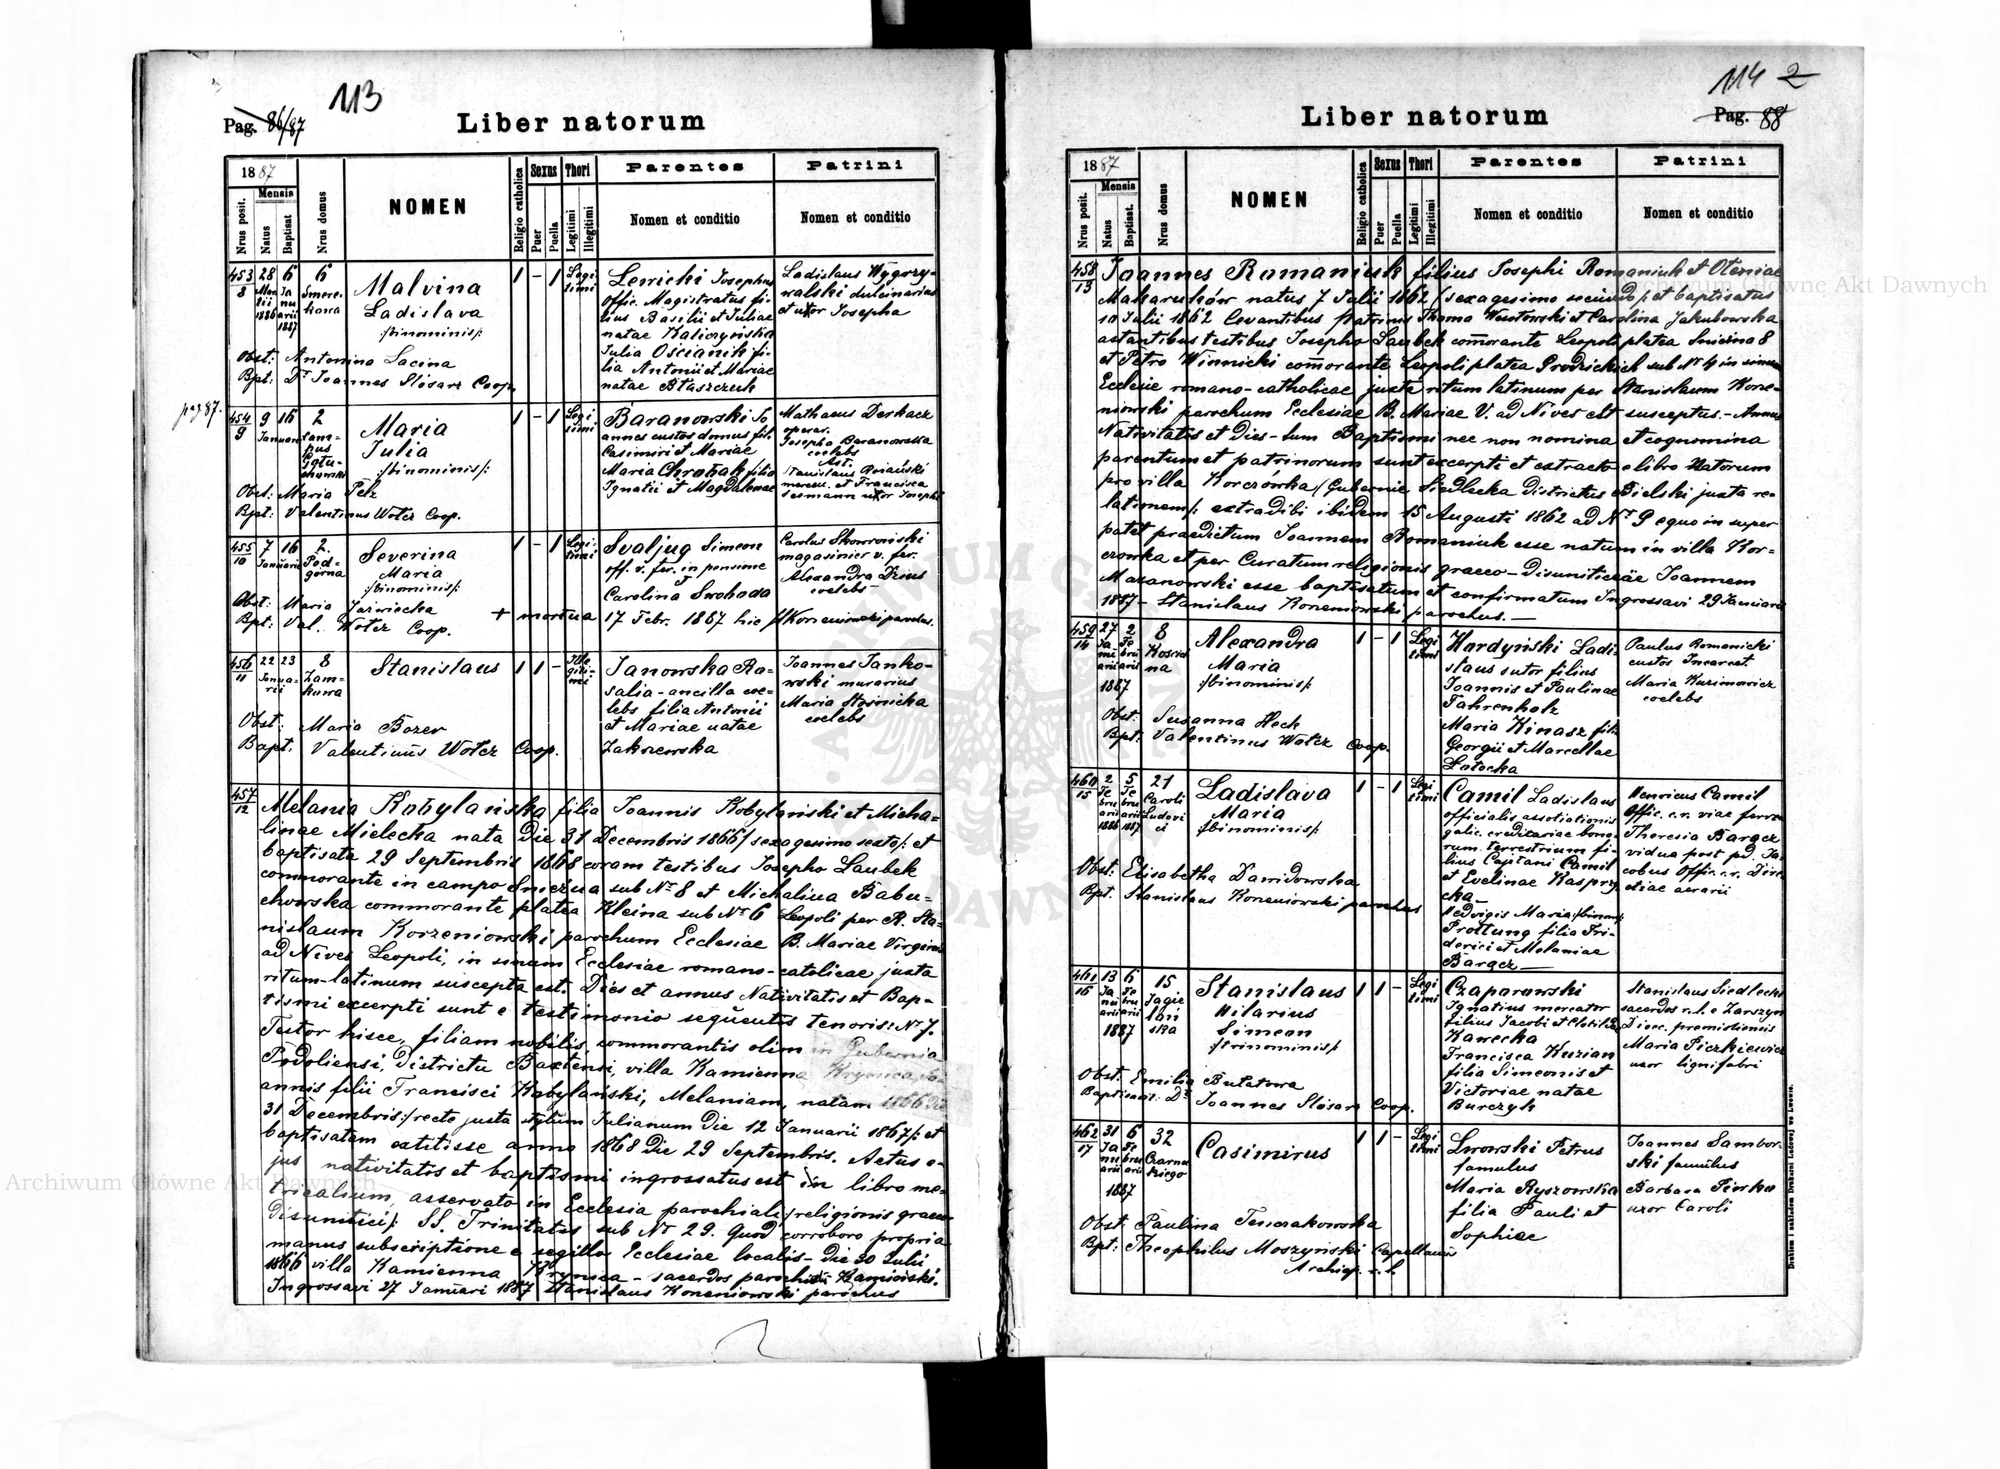 113
Pag. 86/87
Liber natorum
1887
Nrus posit.
Mensis
Natus
Baptisat
Nrus domus
NOMEN
Religio catholica
Sexus
Puer
Puella
Thori
Legitimi
Illegitimi
Parentes
Nomen et conditio
Patrini
Nomen et conditio
453
8
28
Martii
1886
6
Januarii
1887
6
Smerekowa
Malvina
Ladislava
/:binominis:/
1 - 1
Legitimi
Lewicki Josephus
offic. Magistratus fi-
lius Basilii et Juliae
natae Kaliczyńska
Julia Oscianik fi-
lia Antonii et Mariae
natae Błaszczuk
Ladislaus Wygrzy-
walski dulcinarius
et uxor Josepha
Obst: Antonina Lacina
Bpt: Dr Joannes Slósarz Coop.
pag 87.
454
9
9
16
Januarii
2
Maria
Julia
/:binominis:/
1 - 1
Legitimi
Baranowski Jo-
annes custos domus fil.
Casimiri et Mariae
Maria Chrobak filia
Ignatii et Magdalenae
Mathaeus Derkacz
operar.
Josepha Baranowska
coelebs
Ast.
Stanislaus
et Francisca
uxor Josephi
Obst: Maria Pelz
Bpt: Valentinus Wotcz Coop.
455
10
7
16
Januarii
2
Podgórna
Severina
Maria
/:binominis:/
1 - 1
Legitimi
Svaljug Simeon
off. v. fer. in pensione
Carolina Swoboda
Carolus Skowroński
magasinier v. fer.
Alexandra Dzius
coelebs
Obst: Maria Jaźwiecka
+ mortua 17 Febr. 1887 hic Korzeniowski paroch.
Bpt: Val. Wotcz Coop.
456
11
22
23
Januarii
8
Zamkowa
Stanislaus
1 1 -
Illegitimi
Janowska Ro-
salia - ancilla coe-
lebs filia Antonii
et Mariae natae
Zakrzewska
Joannes Janko-
wski murarius
Maria Stosnicka
coelebs
Obst: Maria Bozer
Bapt. Valentinus Wotcz Coop.
457
12
Melania Kobylańska filia Joannis Kobylański et Micha-
linae Mielecka nata Die 31 Decembris 1866 / sexagesimo sexto /: et
baptisata 29 Septembris 1868 coram testibus Josepho Laubek
commorante in campo Śnieżna sub Nr 8 et Michalina Babu-
chowska commorante platea Kleina sub Nr 6 Leopoli per R. Sta-
nislaum Korzeniowski parochum Ecclesiae B. Mariae Virginis
ad Nives Leopoli, in sinum Ecclesiae romano-catolicae juxta
ritum latinum suscepta est. Dies et annus Nativitatis et Bap-
tismi excerpti sunt e testimonio sequentis tenoris: Nr 7.
Testor hisce, filiam nobilis, commorantis olim in Gubernia
Podoliensi, Districtu Baxtensi, villa Kamienna Krynica, Jo-
annis filii Francisci Kobylański, Melaniam, natam 1866 Die
31 Decembris :/ recte juxta stylum Julianum Die 12 Januarii 1867 /: et
baptisatam extitisse anno 1868 Die 29 Septembris. Actus e-
jus nativitatis et baptismi ingrossatus est in libro me-
tricalium, asservato in Ecclesia parochiali / religionis graeco-
disunitici /: SS. Trinitatis sub Nr 29. Quod corroboro propria
manus subscriptione e sigillo Ecclesiae localis - Die 30 Julii
1866 villa Kamienna Krynica - sacerdos parochus Kamiński.
Ingrossavi 27 Januari 1887 Stanislaus Korzeniowski parochus
114 2
Pag. 88
Liber natorum
1887
Nrus posit.
Mensis
Natus
Baptisat.
Nrus domus
NOMEN
Religio catholica
Sexus
Puer
Puella
Thori
Legitimi
Illegitimi
Parentes
Nomen et conditio
Patrini
Nomen et conditio
458
13
Joannes Romaniuk filius Josephi Romaniuk et Oteniae
Makaruków natus 7 Julii 1862 (sexagesimo secundo /: et baptisatus
10 Julii 1862 levantibus patrinis Thoma Wustowski et Carolina Jakubowska
astantibus testibus Josepho Laubek comorante Leopoli platea Śnieżna 8
et Petro Winnicki comorante Leopoli platea sub Nr 4 in sinum
Ecclesie romano-catholicae juxta ritum latinum per Stanislaum Korze-
niowski parochum Ecclesiae B. Mariae V. ad Nives est susceptus. - Annus
Nativitatis et Dies - tum Baptismi nec non nomina et cognomina
parentum et patrinorum sunt excerpti et extracto e libro Natorum
pro villa Korczówka / Gubernie Siedlecka Districtus Bielski juxta re-
lationem /: extradibi ibidem 15 Augusti 1862 ad Nr 9 equo in super
patet praedictum Joannem Romaniuk esse natum in villa Kor-
czowka et per Curatum religionis graeco-Disuniticae Joannem
Mazanowski esse baptisatum et confirmatum Ingrossavi 29 Januarii
1887 - Stanislaus Korzeniowski parochus. -
459
14
27
Januarii
2
Februarii
1887
8
Alexandra
Maria
/:binominis:/
1 - 1
Legitimi
Hordyński Ladi-
slaus sutor filius
Joannis et Paulinae
Fahrenholz
Maria Kinasz filia
Georgii et Marcellae
Łatocka
Paulus Romanicki
custos Incarcet.
Maria Kuzimowicz
coelebs
Obst: Susanna Heck
Bpt: Valentinus Wotcz Coop.
460
15
2
Februarii
1886
5
Februarii
1887
21
Caroli
Ludovici
Ladislava
Maria
/:binominis:/
1 - 1
Legitimi
Camil Ladislaus
officialis assotiationis
galic. creditariae bono-
rum terrestrium fi-
lius Cajetani Camil
et Evelinae Kasprzy-
cka -
Hedvigis Maria /:binom:/
Prottung filia Fri-
derici et Melaniae
Barącz -
Henricus Camil
Offic. c.r. viae ferre
Theresia Barącz
vidua post pd. Ja-
cobus Offic. c.r. Dire-
ctiae aerarii
Obst: Elisabetha Dawidowska
Bpt. Stanislaus Korzeniowski parochus
461
16
13
Januarii
6
Februarii
1887
15
Jagiellońska
Stanislaus
Hilarius
Simeon
/:trinominis:/
1 1 -
Legitimi
Czaparowski
Ignatius mercator
filius Jacobi et Clotildae
Kawecka
Francisca Kuzian
filia Simeonis et
Victoriae natae
Burczyk
Stanislaus Siedlecki
sacerdos r.l. e Zarszyn
Dioec. premisliensis
Maria Piczkiewicz
uxor lignifabri
Obst. Emilia Bulatowa
Baptisavit: Dr Joannes Slósarz Coop.
462
17
31
Januarii
6
Februarii
1887
32
Czarneckiego
Casimirus
1 1 -
Legitimi
Lwowski Petrus
famulus
Maria Ryszowska
filia Pauli et
Sophiae
Joannes Sambor-
ski famulus
Barbara Piorko
uxor Caroli
Obst: Paulina Tenczakowska
Bpt: Theophilus Moszyński Capellanus
Archiep. r.l.
Drukiem i nakładem Drukarni Ludowej we Lwowie.
Archiwum Główne Akt Dawnych
Archiwum Główne Akt Dawnych
ARCHIWUM GŁÓWNE AKT DAWNYCH